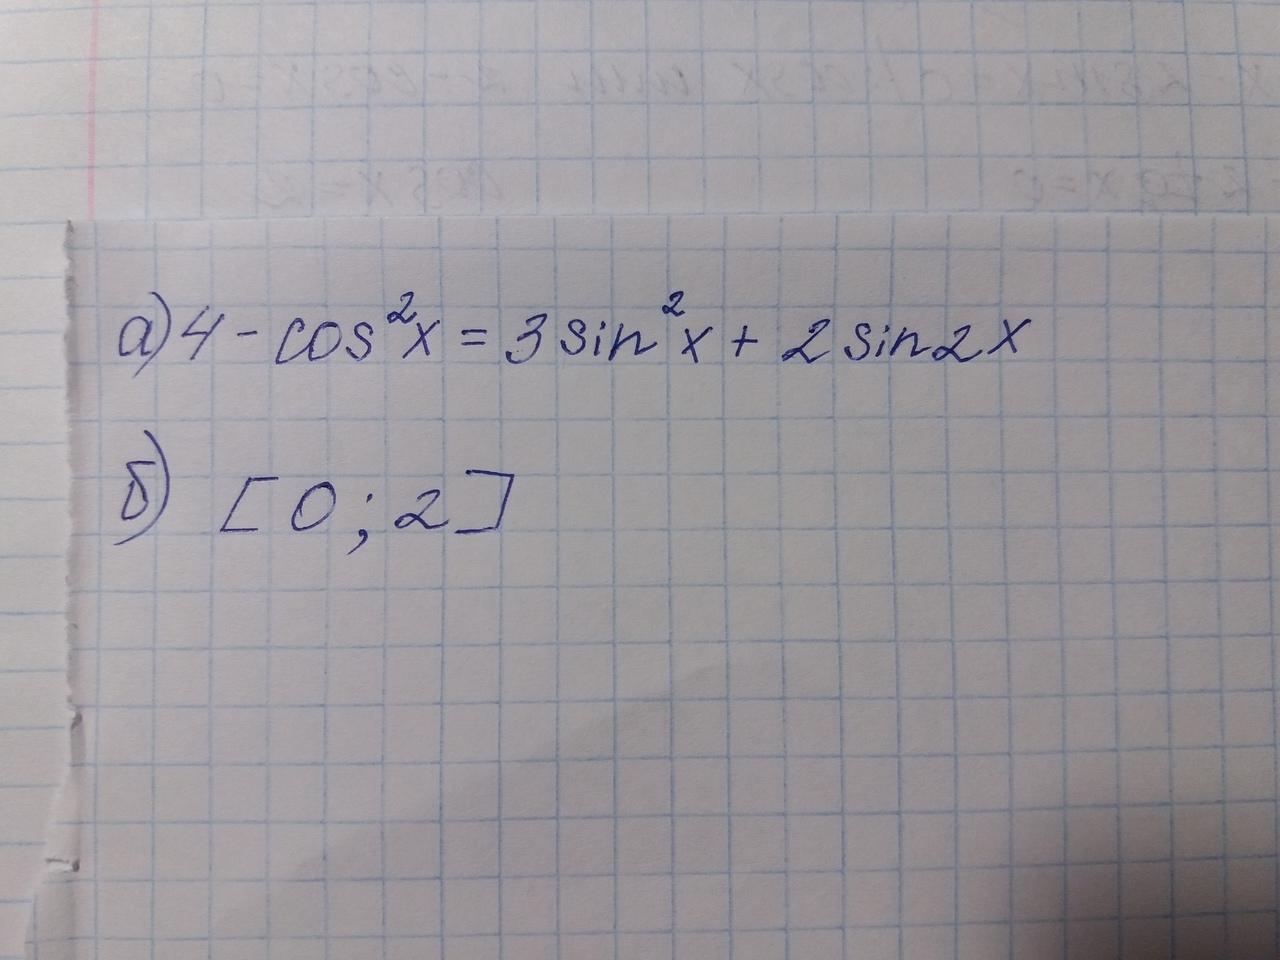 а) 4 - cos²x = 3 sin²x + 2 sin2x
б) [0; 2]